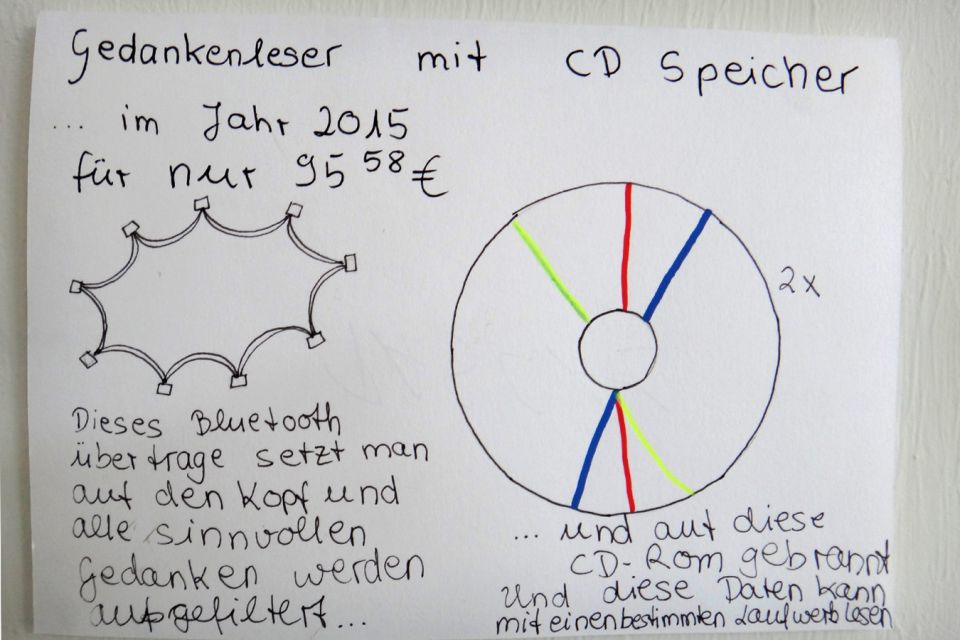 Gedankenleser mit CD Speicher
... im Jahr 2015
für nur 95 58 €
2x
Dieses Bluetooth
übertrage setzt man
auf den Kopf und
alle sinnvollen
Gedanken werden
ausgefiltert...
... und auf diese
CD-Rom gebrannt
Und diese Daten kann
mit einen bestimmten Laufwerb lesen